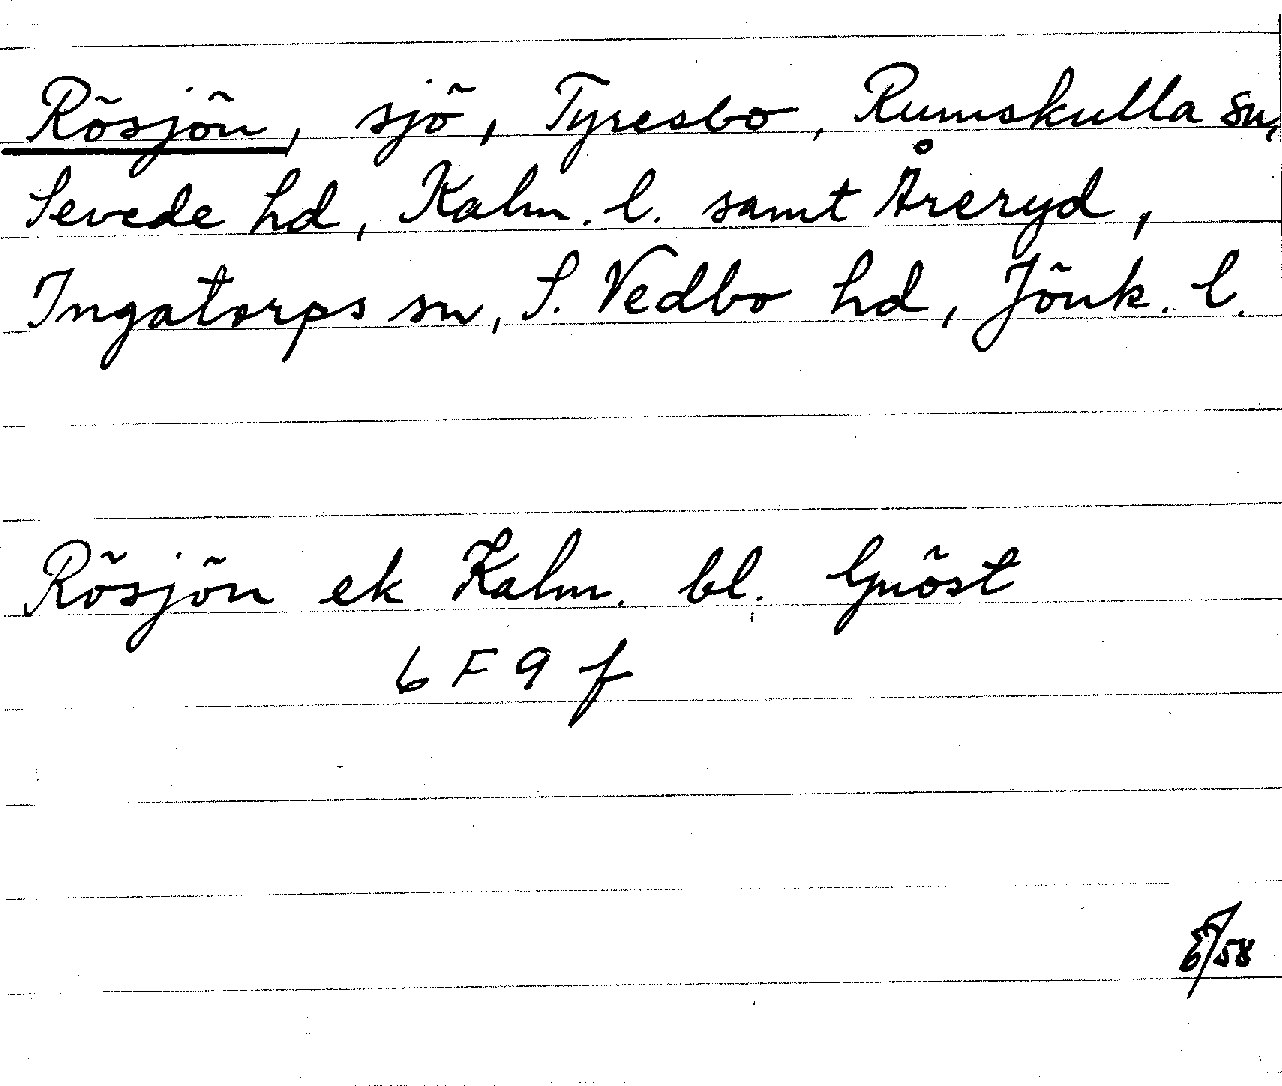 Rösjön, sjö, Tyresbo, Rumskulla sn,
Sevede hd, Kalm. l. samt Åreryd,
Ingatorps sn, S. Vedbo hd, Jönk. l.
Rösjön ek Kalm. bl. Gnöst
6 F 9 f